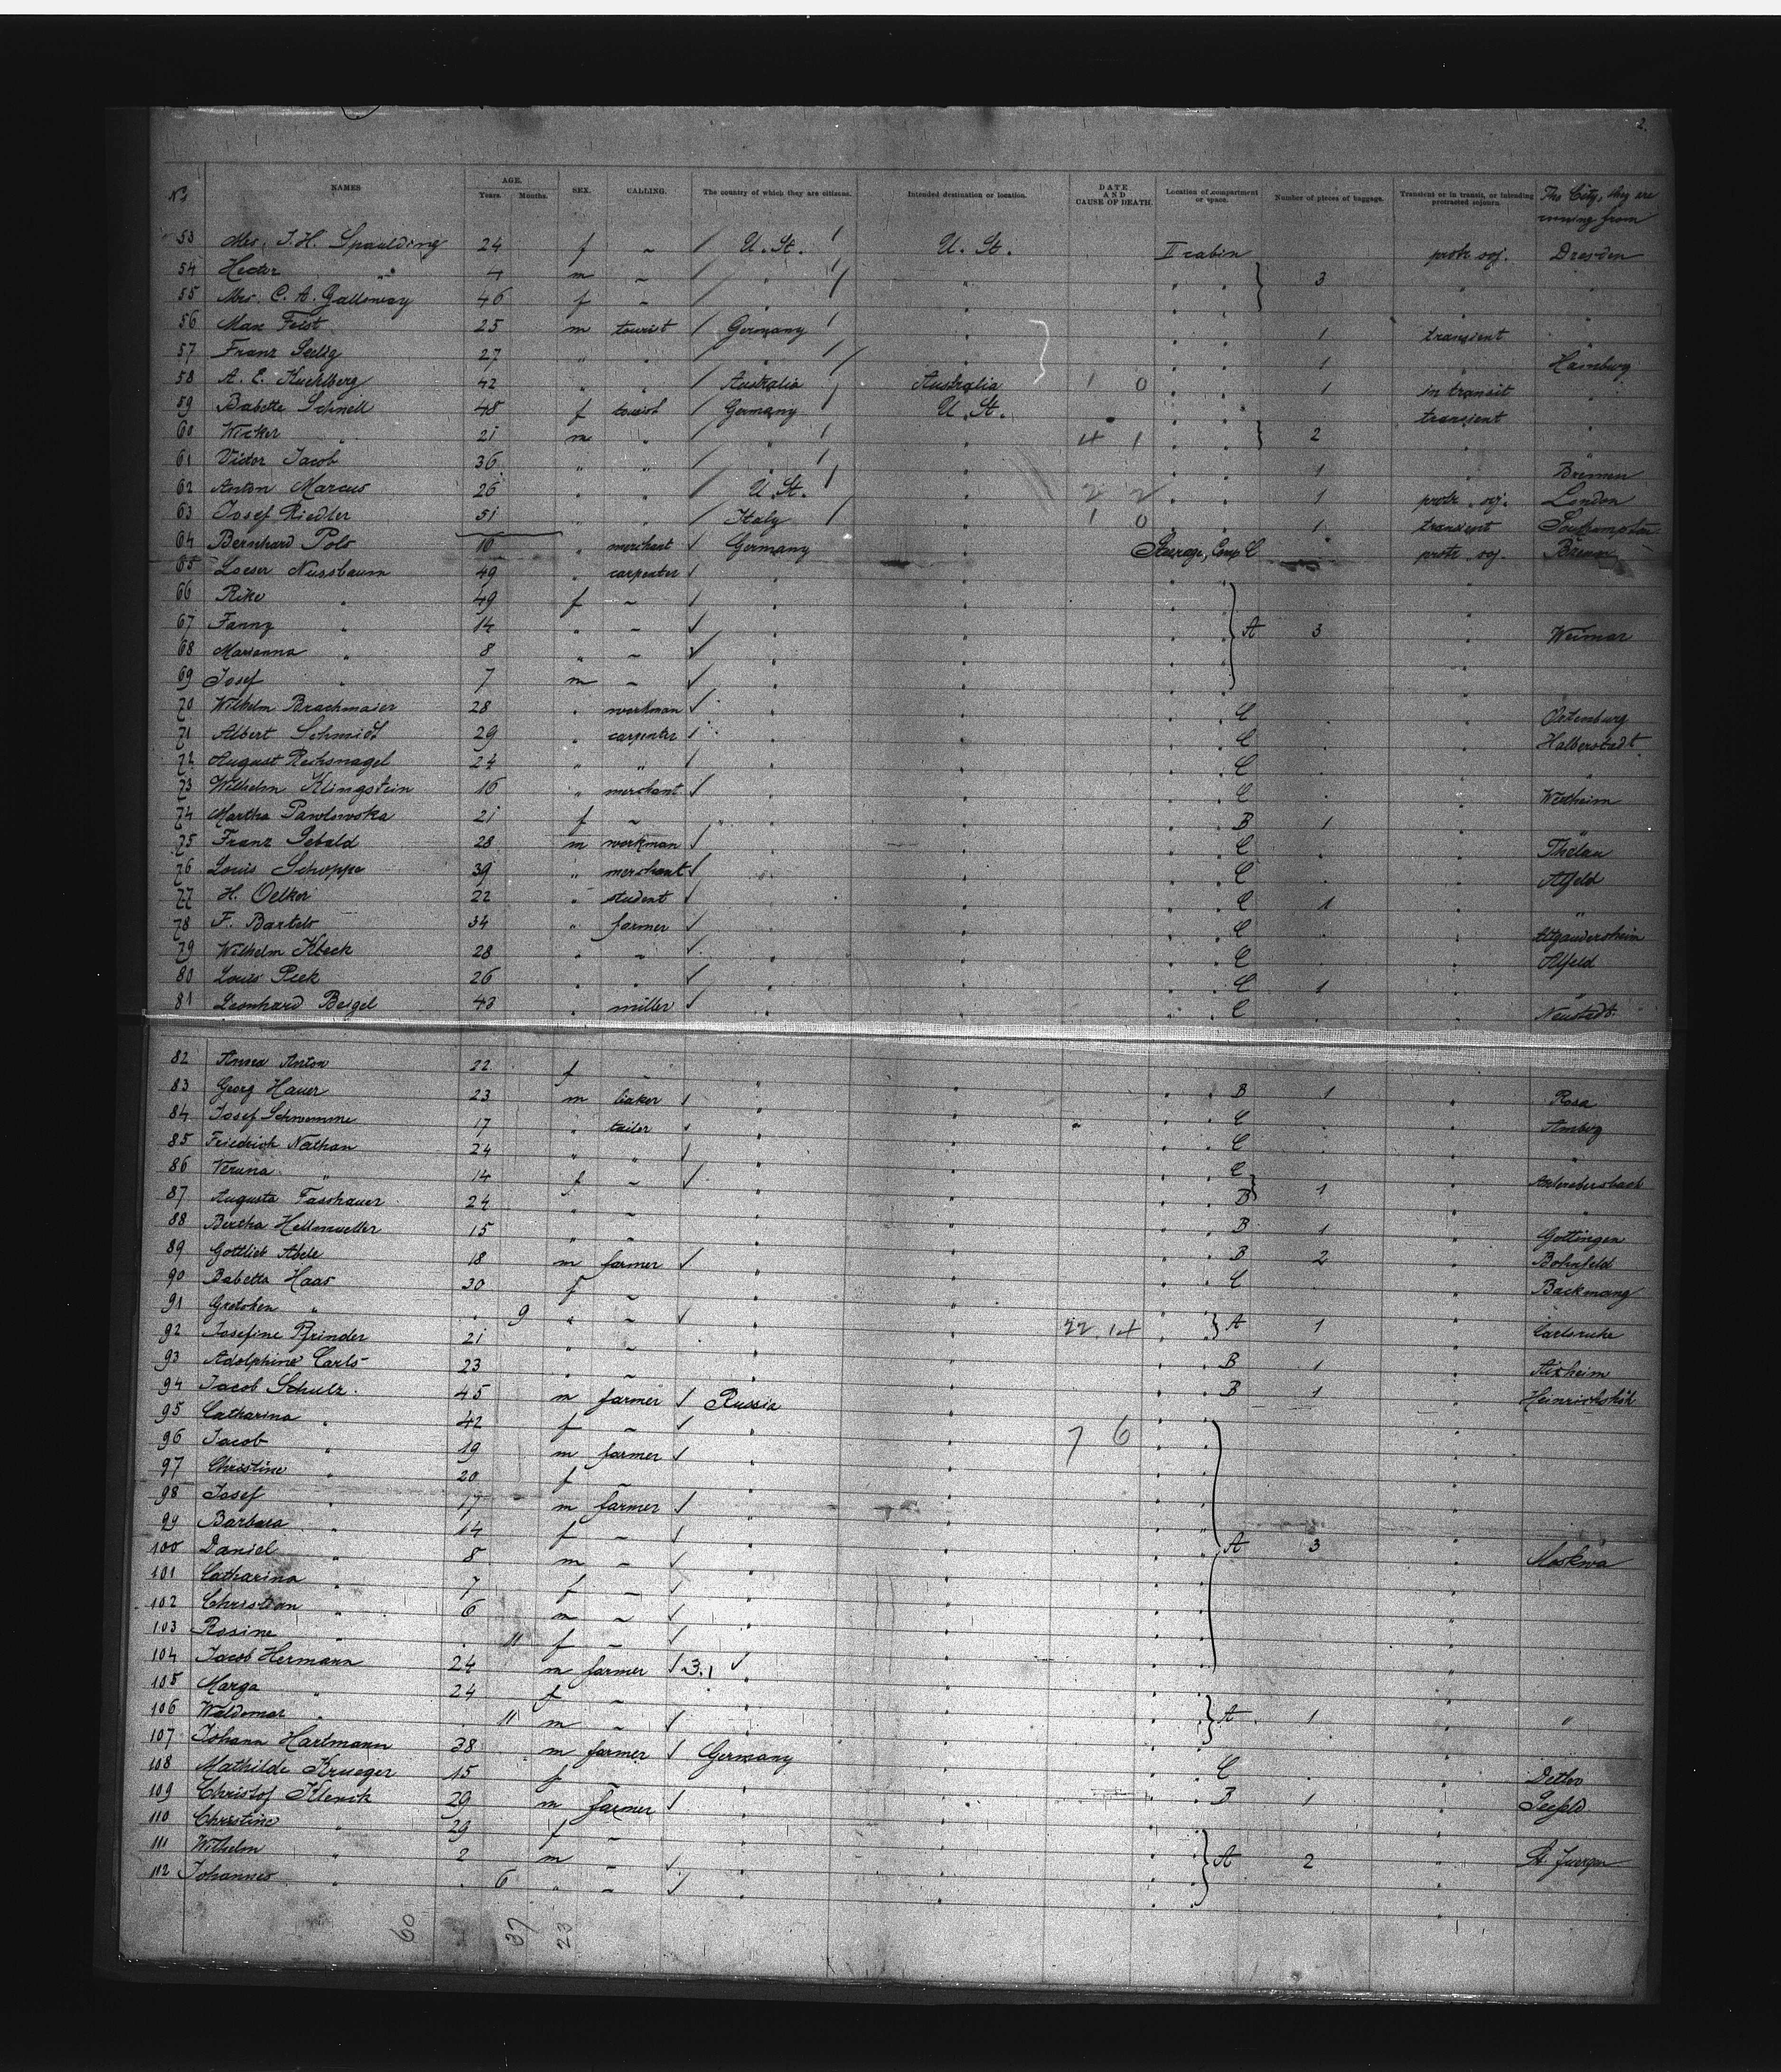 2.
No NAMES AGE. Years. Months. SEX. CALLING. The country of which they are citizens. Intended destination or location. DATE AND CAUSE OF DEATH. Location of compartment or space. Number of pieces of baggage. Transient or in transit, or intending protracted sojourn. The City, they are coming from
53 Mrs. J. H. Spaulding 24 f - U. St. U. St. II cabin protr. soj. Dresden
54 Hector " m - " " " 3 " "
55 Mrs. C. A. Galloway 46 f - " " " " "
56 Max Feist 25 m tourist Germany " " 1 transient "
57 Franz Seelig 27 " " " " " 1 " Hamburg
58 A. E. Kuehlberg 42 " " Australia Australia 1 0 " 1 in transit "
59 Babette Schnell 48 f tourist Germany U. St. " transient "
60 " 21 m " " " 4 1 " 2 " "
61 Victor Jacob 36 " " " " " 1 " Bremen
62 Anton Marcus 26 " " U. St. " 2 2 " 1 protr. soj. London
63 Josef Riedler 51 " " Italy " 1 0 " 1 transient Southampton
64 Bernhard Polo 16 " merchant Germany " Steerage, Comp. C " protr. soj. Bremen
65 Loeser Nussbaum 49 " carpenter " " "
66 Rike " 49 f - " " " "
67 Fanny " 14 " - " " " A 3 " Weimar
68 Marianna " 8 " - " " " "
69 Josef " 7 m - " " " "
70 Wilhelm Brachmaier 28 " workman " " " C " "
71 Albert Schmidt 29 " carpenter " " " C " " Halberstadt
72 August Rechsnagel 24 " " " " " C " " "
73 Wilhelm Klingstein 16 " merchant " " " C " " Wertheim
74 Martha Pawlowska 21 f - " " " B 1 " "
75 Franz Sebald 28 m workman " " " C " "
76 Louis Schoppe 39 " merchant " " " C " " Alfeld
77 H. Oelker 22 " student " " " C 1 " "
78 F. Bartels 34 " farmer " " " C " " Altgandersheim
79 Wilhelm Kbeck 28 " " " " " C " " Alfeld
80 Louis Peek 26 " " " " " C 1 " "
81 Leonhard Beigel 43 " miller " " " C " " Neustadt
82 Anna Anton 22 f - " " " B 1 " Rosa
83 Georg Hauer 23 m baker " " " C " " Amberg
84 Josef Schwemme 17 " tailer " " " C " " "
85 Friedrich Nathan 24 " " " " " C 1 "
86 Veruna " 14 f - " " " B " "
87 Augusta Taschauer 24 " - " " " B 1 " Gottingen
88 Bertha Hellmueller 15 " - " " " B 2 " Bohnfeld
89 Gottlieb Abele 18 m farmer " " " C " " Backnang
90 Babetta Haas 30 f - " " "
91 Gretchen " 9 " - " " 22 14 " A 1 " Carlsruhe
92 Josefine Pfrinder 21 " - " " " B 1 " Aixheim
93 Adolphine Carls 23 " - " " " B 1 "
94 Jacob Schulz 45 m farmer Russia " "
95 Catharina " 42 f - " " 7 6 " "
96 Jacob " 19 m farmer " " " "
97 Christine " 20 f - " " " "
98 Josef " 17 m farmer " " " "
99 Barbara " 14 f - " " " A 3 " Moskwa
100 Daniel " 8 m - " " " "
101 Catharina " 7 f - " " " "
102 Christian " 6 m - " " " "
103 Rosine " 11 f - " " " "
104 Jacob Hermann 24 m farmer 3.1 " " " "
105 Marga " 24 f - " " " A 1 " "
106 Waldemar " 11 m - " " "
107 Johann Hartmann 38 m farmer Germany " " C " "
108 Mathilde Krueger 15 f - " " " B 1 " Seefeld
109 Christof Klenik 29 m farmer " " "
110 Christine " 29 f - " " " A 2 " St. Juergen
111 Wilhelm " 2 m - " " " "
112 Johannes " 6 " - " " " "
60 37 23